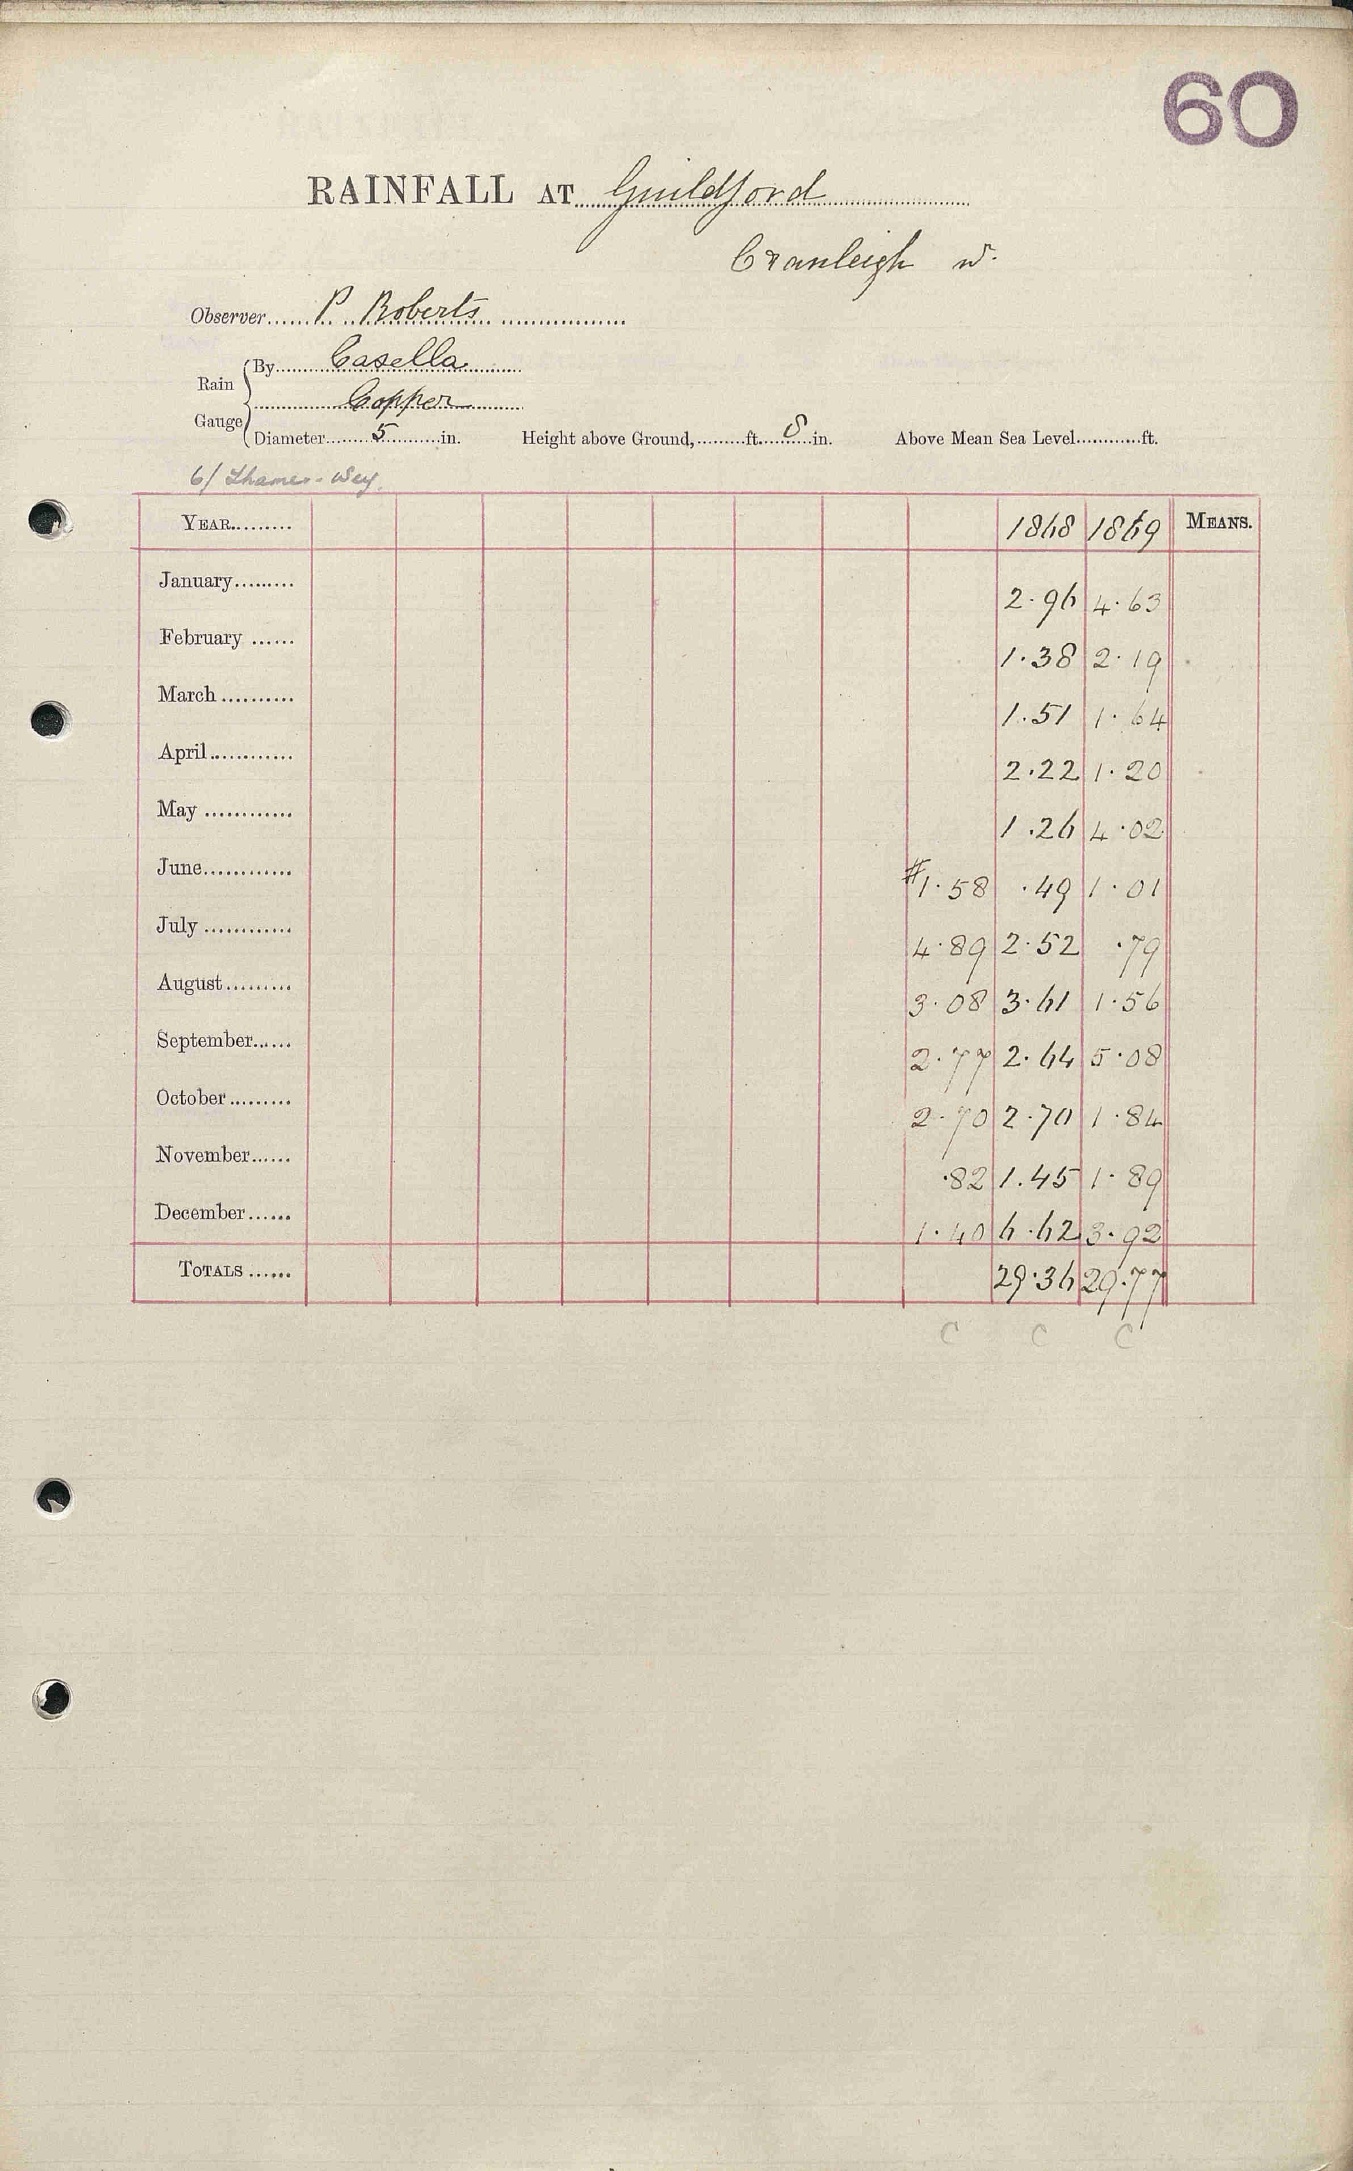 60
RAINFALL AT Guildford
Cranleigh W.
Observer P. Roberts
Rain Gauge { By Casella
Copper
Diameter 5 in. Height above Ground, ft. 8 in. Above Mean Sea Level ft.
6/ Thames - Wey
YEAR 1868 1869 MEANS.
January 2.96 4.63
February 1.38 2.19
March 1.51 1.64
April 2.22 1.20
May 1.26 4.02
June #1.58 .49 1.01
July 4.89 2.52 .79
August 3.08 3.61 1.56
September 2.77 2.64 5.08
October 2.70 2.70 1.84
November .82 1.45 1.89
December 1.40 6.62 3.92
TOTALS 29.36 29.77
C C C